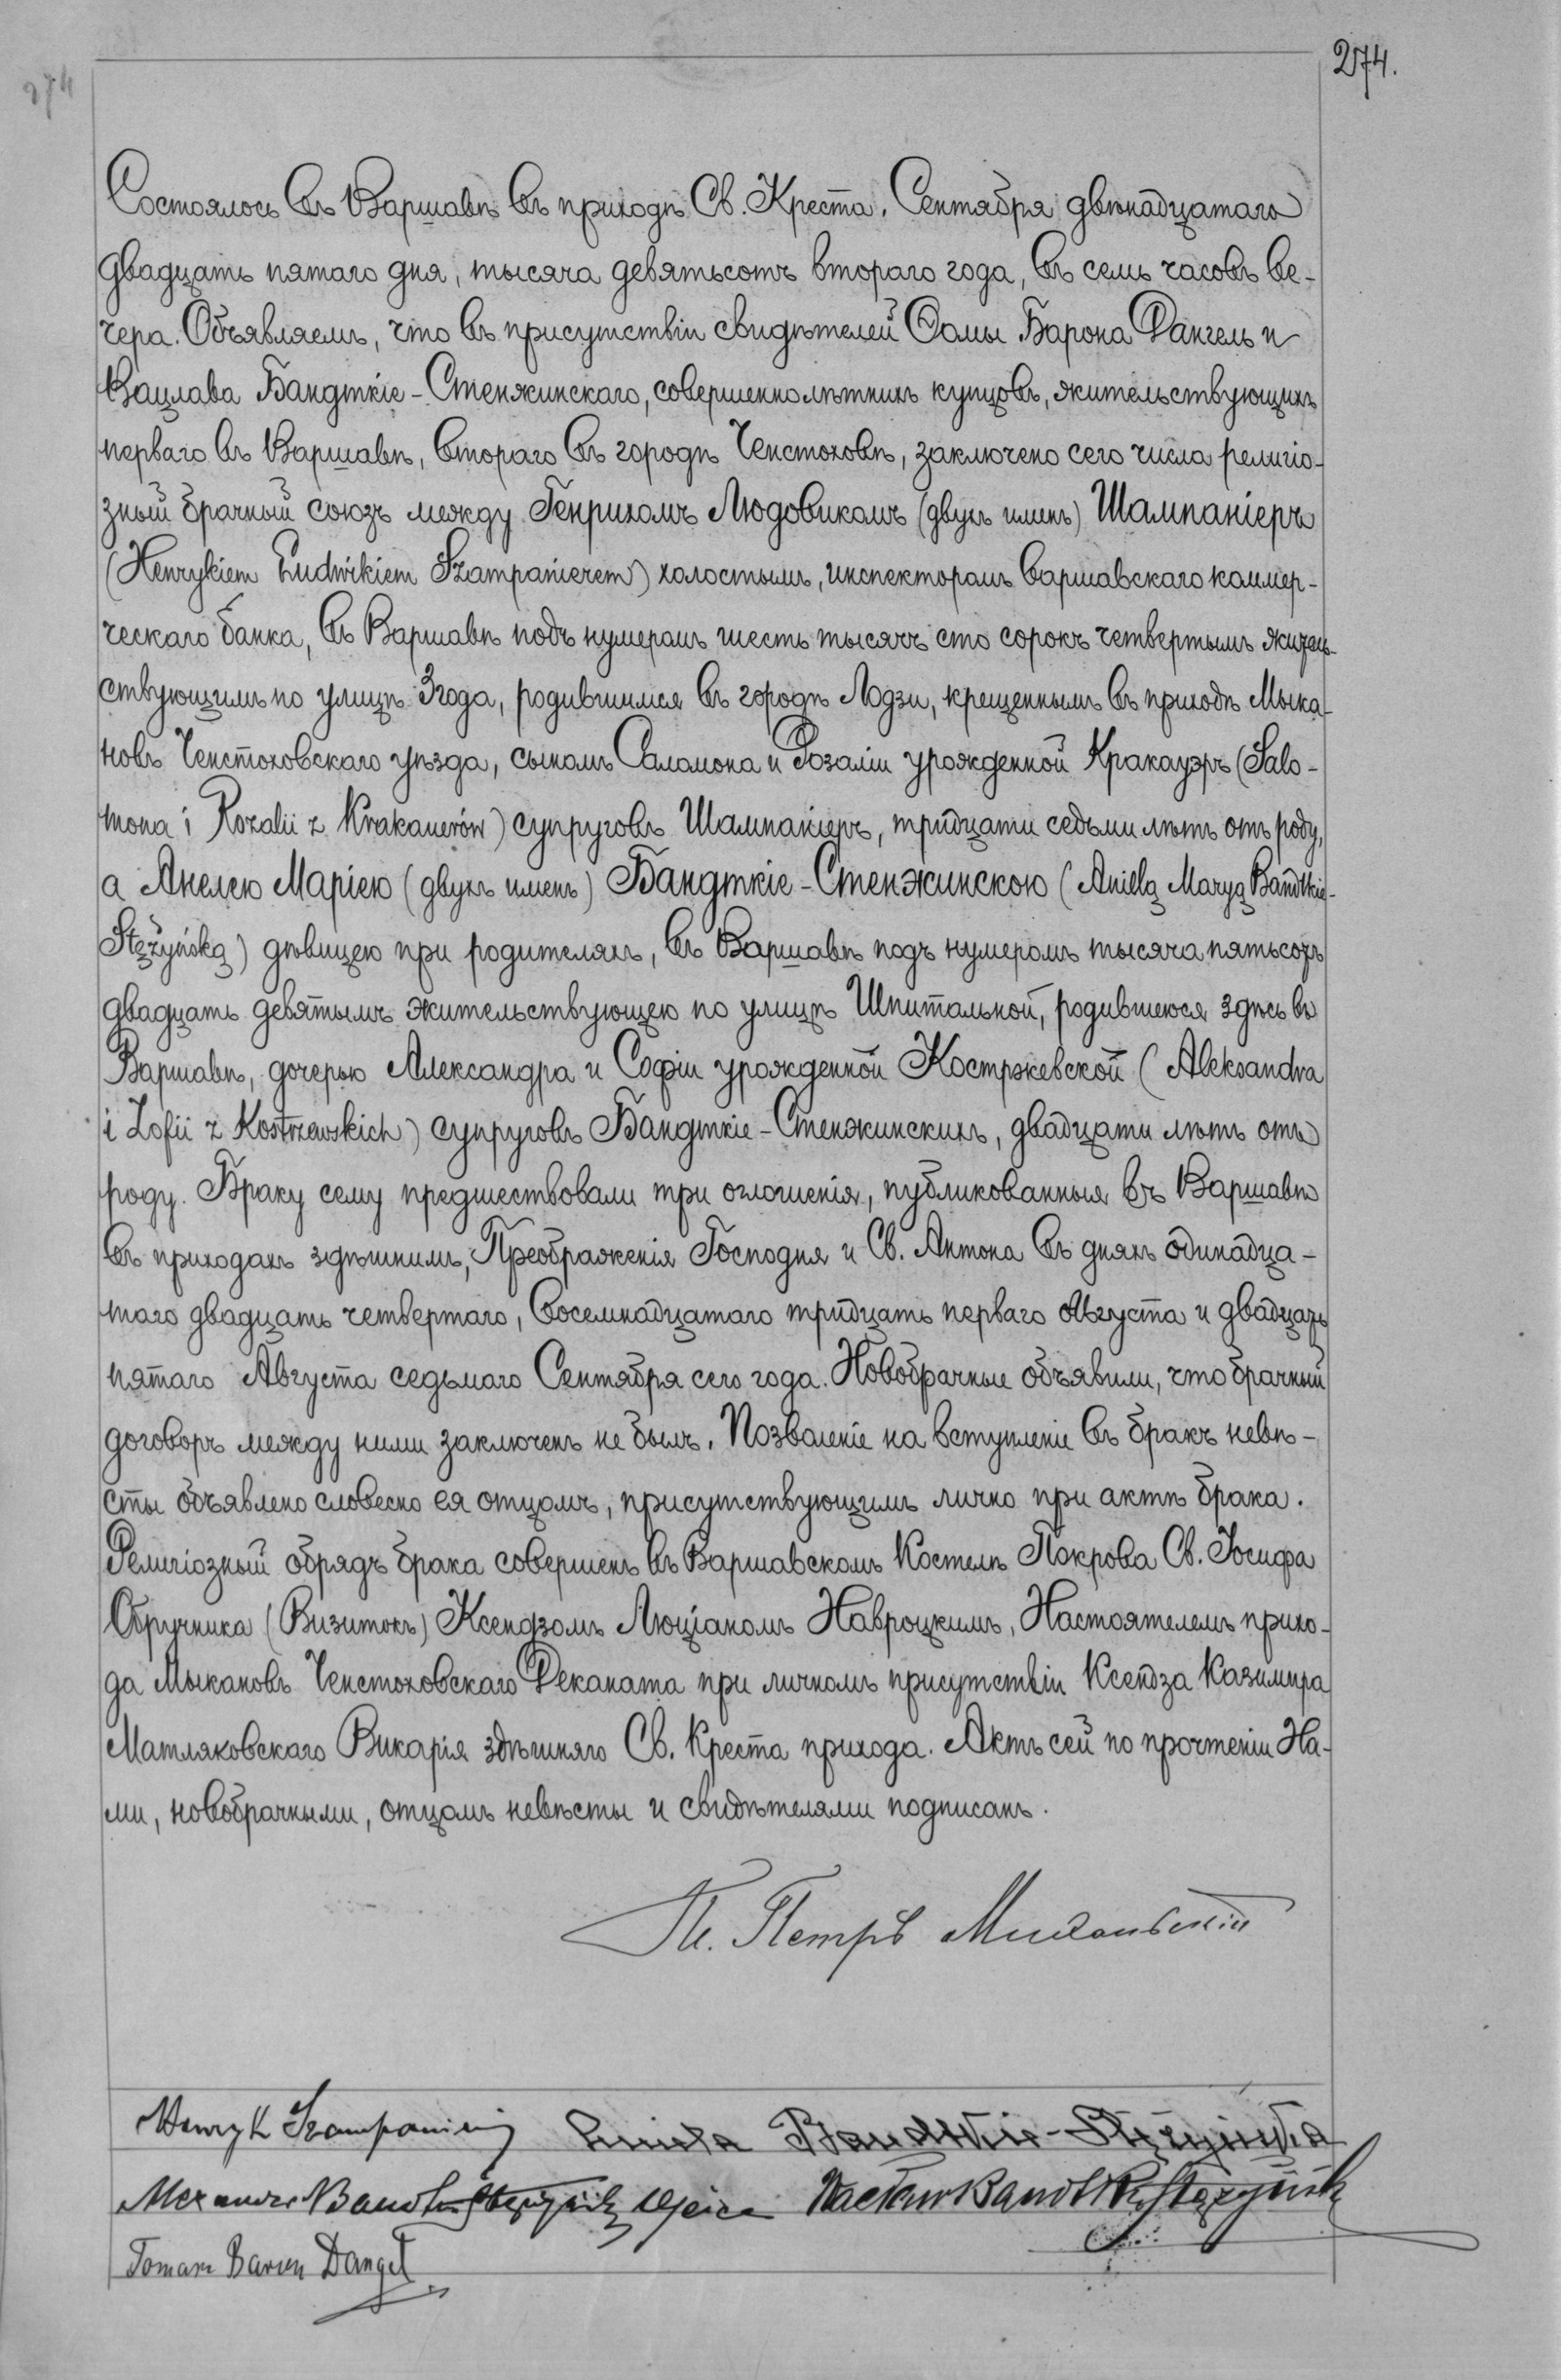 274.
274
Состоялось въ Варшавѣ въ приходѣ Св. Креста, Сентября двѣнадцатаго
двадцать пятаго дня, тысяча девятьсотъ втораго года, въ семь часовъ ве-
чера. Объявляемъ, что въ присутствіи свидѣтелей Ѳомы Барона Дангель и
Вацлава Бандткіе-Стенжинскаго, совершеннолѣтнихъ купцовъ, жительствующихъ
перваго въ Варшавѣ, втораго въ городѣ Ченстоховѣ, заключено сего числа религіо-
зный брачный союзъ между Генрихомъ Людовикомъ (двухъ именъ) Шампаніеръ
(Henrykiem Ludwikiem Szampanierem) холостымъ, инспекторомъ Варшавскаго коммер-
ческаго банка, въ Варшавѣ подъ нумеромъ шесть тысячъ сто сорокъ четвертымъ житель-
ствующимъ по улицѣ Згода, родившимся въ городѣ Лодзи, крещеннымъ въ приходѣ Мыка-
новъ Ченстоховскаго уѣзда, сыномъ Саломона и Розаліи урожденной Кракауэръ (Salo-
mona i Rozalii z Krakauerów) супруговъ Шампаніеръ, тридцати седьми лѣтъ отъ роду,
а Анелею Маріею (двухъ именъ) Бандткіе-Стенжинскою (Anielą Maryą Bandtkie-
Stężyńską) дѣвицею при родителяхъ, въ Варшавѣ подъ нумеромъ тысяча пятьсотъ
двадцать девятымъ жительствующею по улицѣ Шпитальной, родившеюся здѣсь въ
Варшавѣ, дочерью Александра и Софіи урожденной Костржевской (Aleksandra
i Zofii z Kostrzewskich) супруговъ Бандткіе-Стенжинскихъ, двадцати лѣтъ отъ
роду. Браку сему предшествовали три оглошенія, публикованныя въ Варшавѣ
въ приходахъ здѣшнимъ, Преображенія Господня и Св. Антона въ дняхъ одинадца-
таго двадцать четвертаго, восемнадцатаго тридцать перваго Августа и двадцать
пятаго Августа седьмаго Сентября сего года. Новобрачные объявили, что брачный
договоръ между ними заключенъ не былъ. Позволеніе на вступленіе въ бракъ невѣ-
сты объявлено словесно ея отцомъ, присутствующимъ лично при актѣ брака.
Религіозный обрядъ брака совершенъ въ Варшавскомъ Костелѣ Покрова Св. Іосифа
Обручника (Визитокъ) Ксендзомъ Люціаномъ Навроцкимъ, Настоятелемъ прихо-
да Мыкановъ Ченстоховскаго Деканата при личномъ присутствіи Ксендза Казимира
Матляковскаго Викарія здѣшняго Св. Креста прихода. Актъ сей по прочтеніи На-
ми, новобрачными, отцомъ невѣсты и свидѣтелями подписанъ.
Петръ
Henryk Szampanier Aniela Bandtkie-Stężyńska
Alexander Bandtkie Stężyński Ojciec Wacław Bandtkie Stężyński
Tomasz Baron Dangel